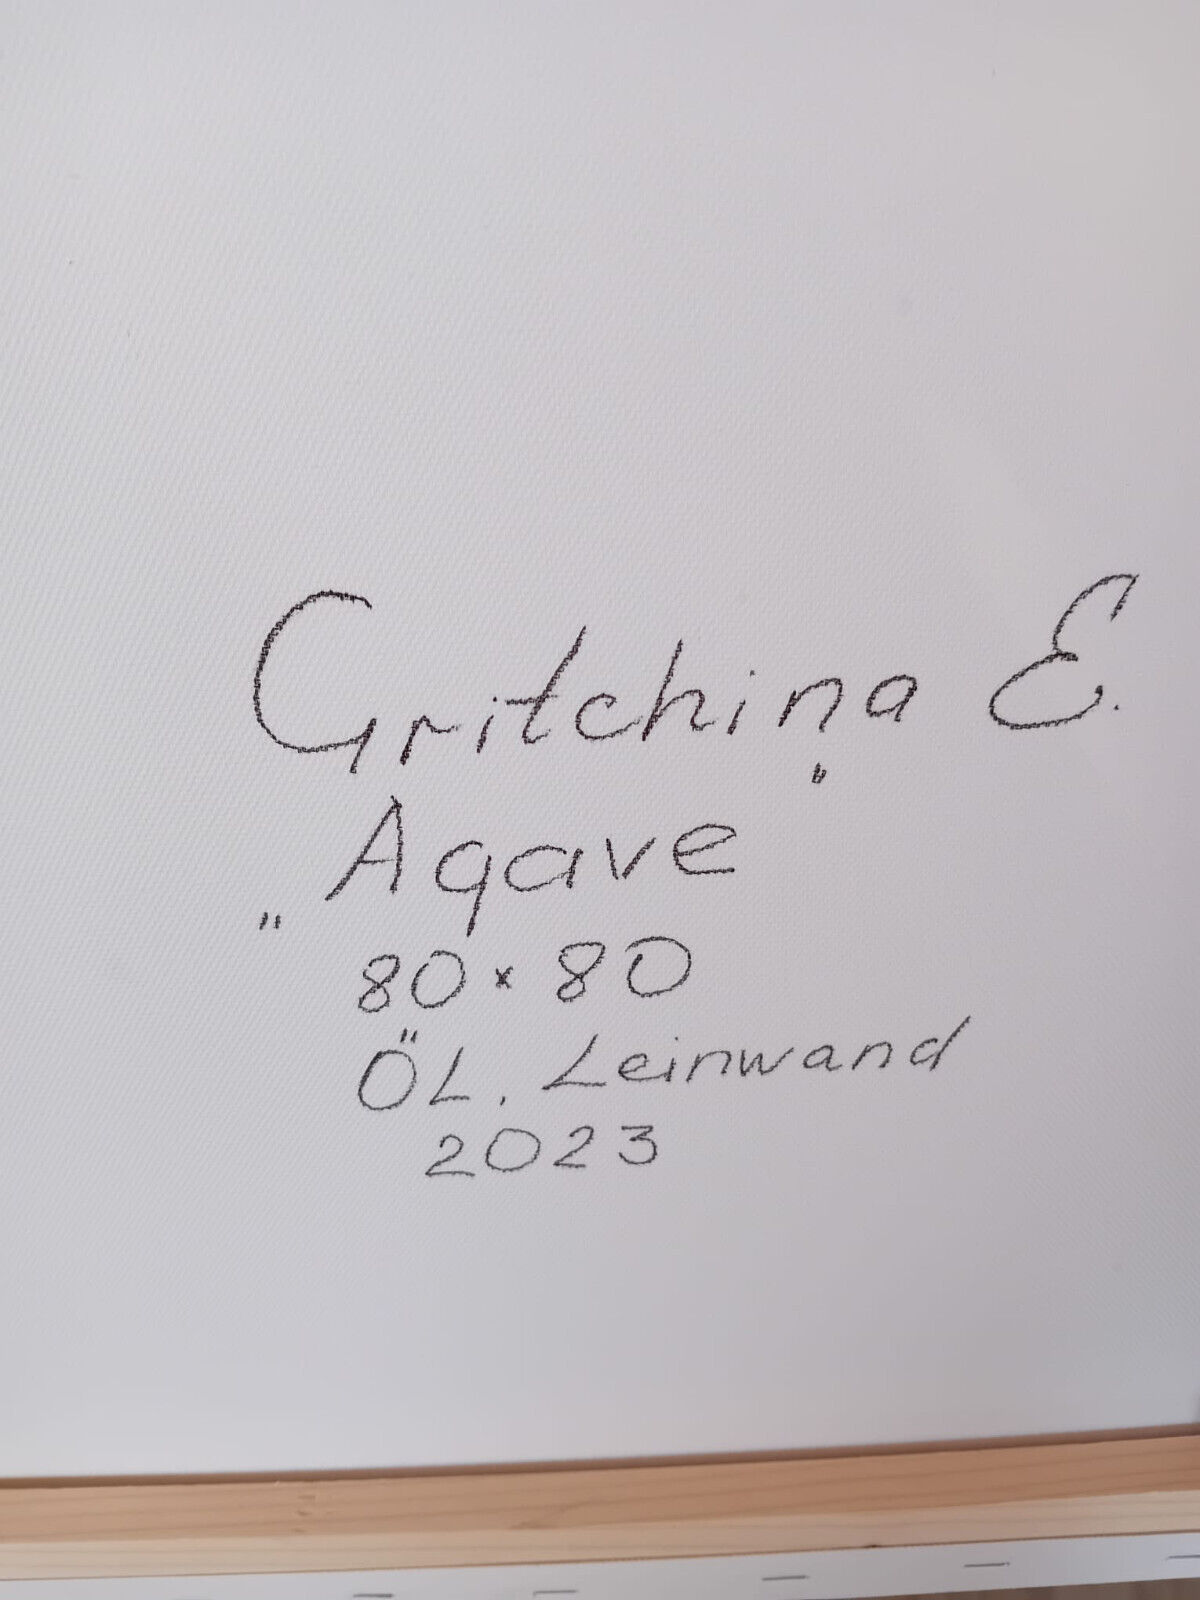 Gritchina E.
„Agave"
80 × 80
ÖL, Leinwand
2023